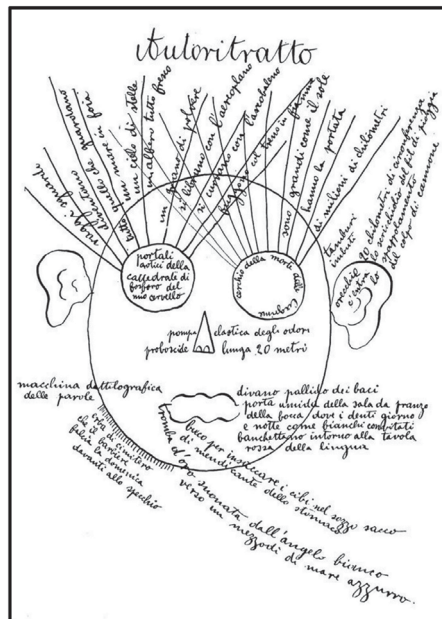 Autoritratto
raggi sguardi
diventano
tutto quello che guardano
un cielo di stelle
un albero tutto fresco
un grano di polvere
si librano con l'aeroplano
si curvano con l'arcobaleno
fuggono col treno in
sono grandi come il sole
hanno la portata
di milioni di chilometri
tamburi
imbuti
orecchie
20 chilometri di circonferenza
lo scricchiolio del filo di
lo sfondamento
del colpo di cannone
portali
gotici della
cattedrale di
fosforo del
mio cervello
cerchio della morte delle
pompa elastica degli odori
proboscide lunga 20 metri
macchina dattilografica
delle parole
divano pallino dei baci
porta umida della sala da pranzo
della bocca dove i denti giorno
e notte come bianchi convitati
banchettano intorno alla tavola
rossa della lingua
erba di cimitero
che il barbiere
falcia la domenica
davanti allo specchio
buco per insaccare i cibi nel sozzo sacco
di mendicante dello stomaco
tromba d'oro suonata dall'angelo bianco
verso un mezzodì di mare azzurro.